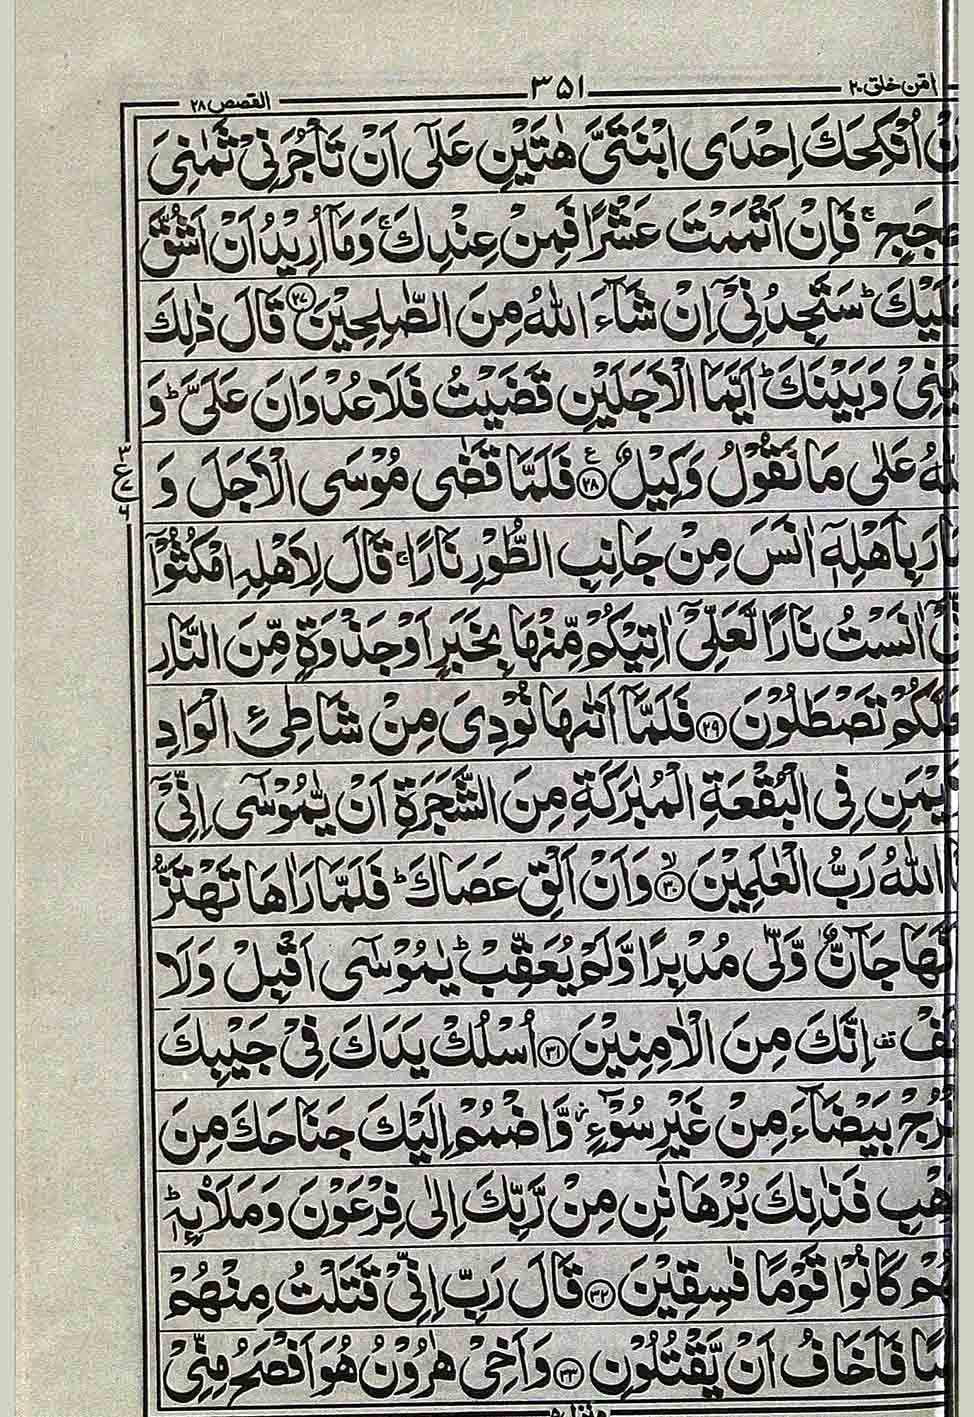 امن خلق ۲۰ ۳۵۱ القصص ۲۸
اُنْكِحَكَ اِحْدَى ابْنَتَىَّ هٰتَيْنِ عَلٰٓى اَنْ تَاْجُرَنِىْ ثَمٰنِىَ
حِجَجٍ ۚ فَاِنْ اَتْمَمْتَ عَشْرًا فَمِنْ عِنْدِكَ ۚ وَمَآ اُرِيْدُ اَنْ اَشُقَّ
عَلَيْكَ ؕ سَتَجِدُنِىْٓ اِنْ شَآءَ اللّٰهُ مِنَ الصّٰلِحِيْنَ ۲۷ قَالَ ذٰلِكَ
بَيْنِىْ وَبَيْنَكَ ؕ اَيَّمَا الْاَجَلَيْنِ قَضَيْتُ فَلَا عُدْوَانَ عَلَىَّ ؕ وَ
اللّٰهُ عَلٰى مَا نَقُوْلُ وَكِيْلٌ ۲۸ ع فَلَمَّا قَضٰى مُوْسَى الْاَجَلَ وَ
۳ ع ۷ ۶
سَارَ بِاَهْلِهٖٓ اٰنَسَ مِنْ جَانِبِ الطُّوْرِ نَارًا ۚ قَالَ لِاَهْلِهِ امْكُثُوْٓا
اٰنَسْتُ نَارًا لَّعَلِّىْٓ اٰتِيْكُمْ مِّنْهَا بِخَبَرٍ اَوْ جَذْوَةٍ مِّنَ النَّارِ
لَعَلَّكُمْ تَصْطَلُوْنَ ۲۹ فَلَمَّآ اَتٰىهَا نُوْدِىَ مِنْ شَاطِئِ الْوَادِ
الْاَيْمَنِ فِى الْبُقْعَةِ الْمُبٰرَكَةِ مِنَ الشَّجَرَةِ اَنْ يّٰمُوْسٰٓى اِنِّىْٓ
اللّٰهُ رَبُّ الْعٰلَمِيْنَ ۙ ۳۰ وَاَنْ اَلْقِ عَصَاكَ ؕ فَلَمَّا رَاٰهَا تَهْتَزُّ
كَاَنَّهَا جَآنٌّ وَّلّٰى مُدْبِرًا وَّلَمْ يُعَقِّبْ ؕ يٰمُوْسٰٓى اَقْبِلْ وَلَا
تَخَفْ قف اِنَّكَ مِنَ الْاٰمِنِيْنَ ۳۱ اُسْلُكْ يَدَكَ فِىْ جَيْبِكَ
تَخْرُجْ بَيْضَآءَ مِنْ غَيْرِ سُوْٓءٍ ز وَّاضْمُمْ اِلَيْكَ جَنَاحَكَ مِنَ
الرَّهْبِ فَذٰنِكَ بُرْهَانٰنِ مِنْ رَّبِّكَ اِلٰى فِرْعَوْنَ وَمَلَا۟ئِهٖ ؕ
اِنَّهُمْ كَانُوْا قَوْمًا فٰسِقِيْنَ ۳۲ قَالَ رَبِّ اِنِّىْ قَتَلْتُ مِنْهُمْ
نَفْسًا فَاَخَافُ اَنْ يَّقْتُلُوْنِ ۳۳ وَاَخِىْ هٰرُوْنُ هُوَ اَفْصَحُ مِنِّىْ
منزل ۵